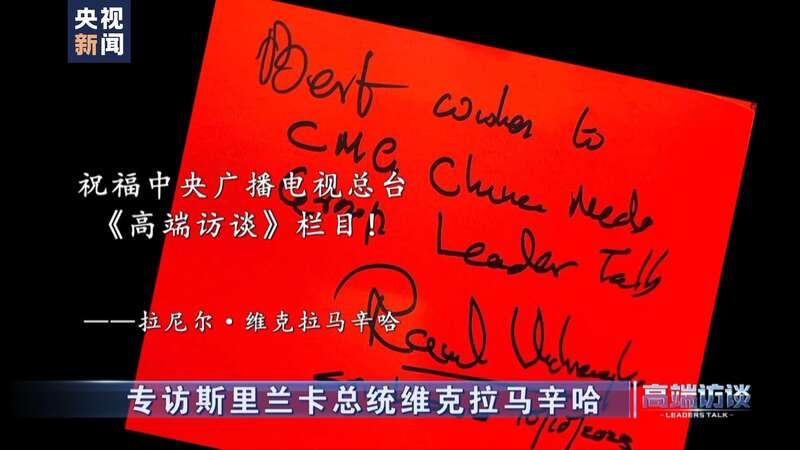 央视
新闻
Best wishes to
CMG China Media
Group Leader Talk
祝福中央广播电视总台
《高端访谈》栏目！
——拉尼尔·维克拉马辛哈
专访斯里兰卡总统维克拉马辛哈
高端访谈
LEADERS TALK